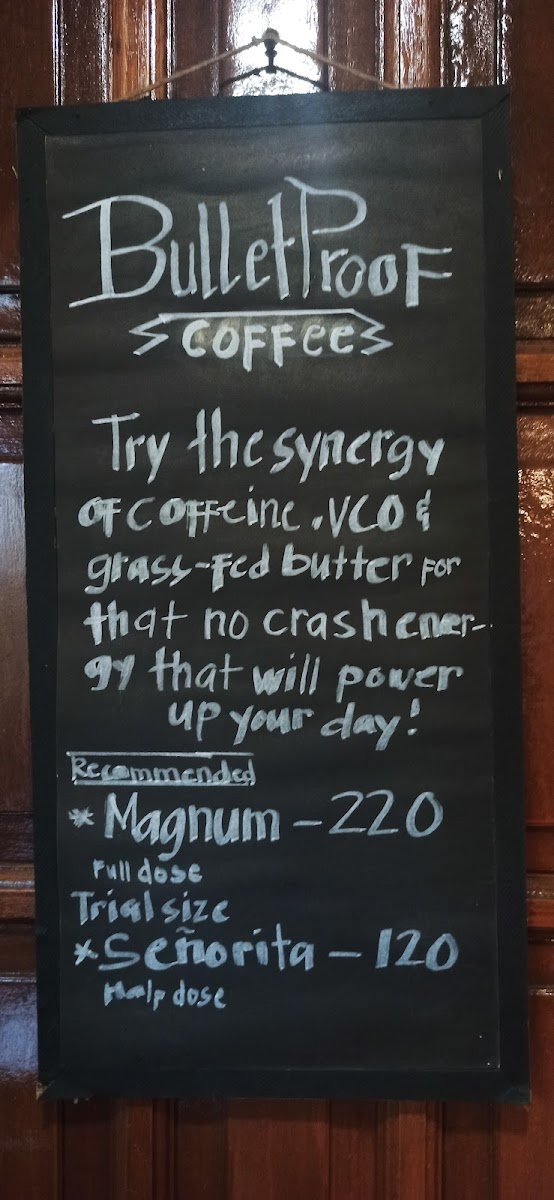 BulletProof
COFFEE
Try the synergy
of coffeine, VCO &
grass-fed butter for
that no crash ener-
gy that will power
up your day!
Recommended
* Magnum - 220
Full dose
Trial size
* Señorita - 120
Half dose